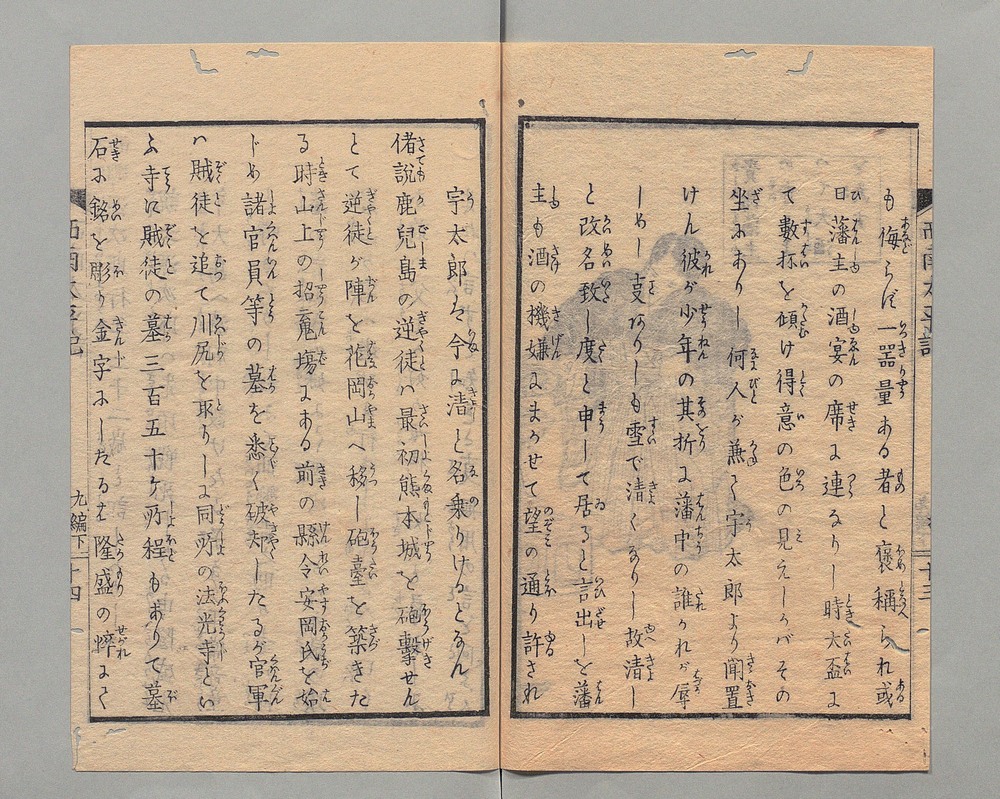 も侮らば一噐量ある者と褒稱られ或
日藩主の酒宴の席に連なりし時大盃に
て數杯を傾け得意の色の見えしかバその
坐にありし何人か兼て宇太郎より聞置
けん彼が少年の其折に藩中の誰かれが辱
しめし亥ありしも雪で清くなりし故清し
と改名致し度と申して居ると言出しを藩
主も酒の機嫌にまかせて望の通り許され
十三
宇太郎を今に清と名乗りけるとなん
偖說鹿兒島の逆徒ハ最初熊本城を砲擊せん
とて逆徒が陣を花岡山へ移し砲臺を築きた
る時山上の招䰟塲にある前の縣令安岡氏を始
じめ諸官員等の墓を悉く破却したるが官軍
ハ賊徒を追て川尻を取りしに同所の法光寺とい
ふ寺に賊徒の墓三百五十ケ所程もありて墓
石に銘を彫り金字にしたるは隆盛の悴にて
西南太平記
九編下
十四